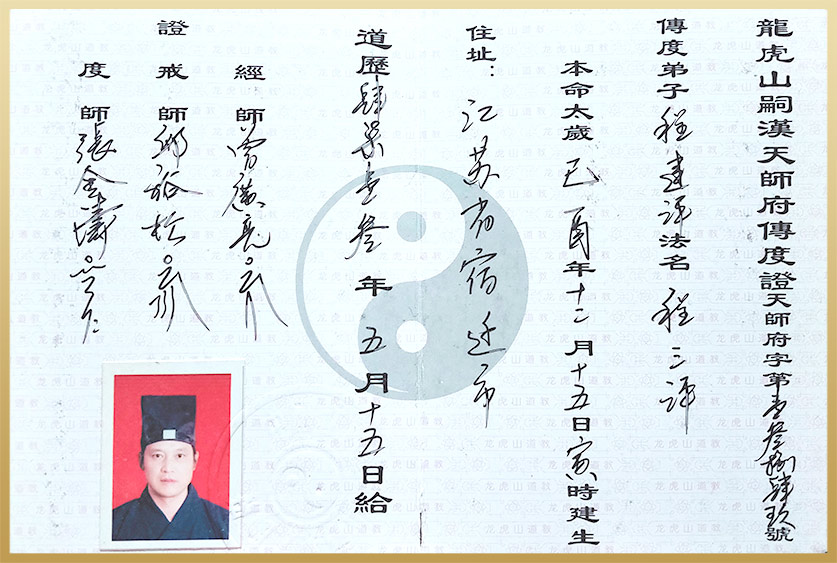 龍虎山嗣漢天師府傳度證天師府字第壹叁捌肆玖號
傳度弟子程建評法名程三評
本命太歲己酉年十二月十五日寅時建生
住址：江苏省宿迁市
道歷肆柒壹叁年五月十五日給
經師曾廣亮
證戒師邱裕松
度師張金濤